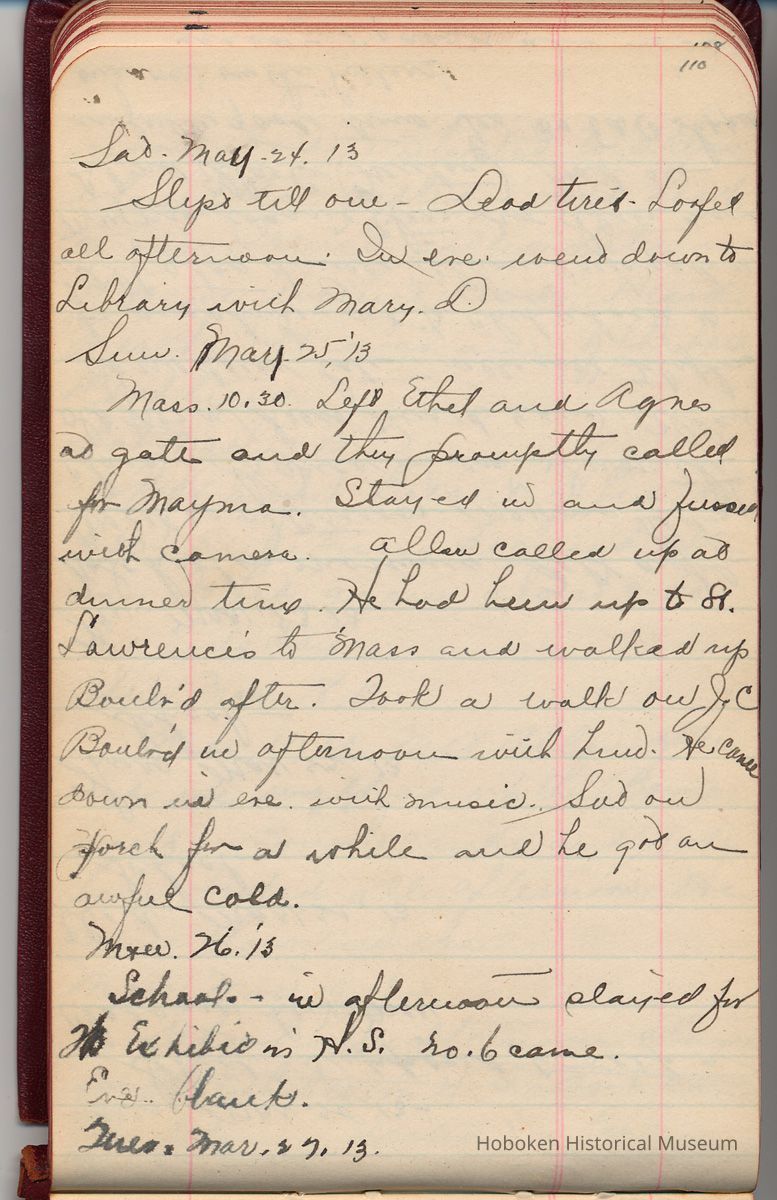 110
Sat. May. 24. 13
Slept till one - Dead tired - Loafed
all afternoon. In eve. went down to
Library with Mary. D.
Sun. May. 25, '13
Mass. 10.30. Left Ethel and Agnes
at gate and they promptly called
for Mayma. Stayed in and fussed
with camera. Allen called up at
dinner time. He had been up to St.
Lawrence's to Mass and walked up
Boulv'd after. Took a walk on J.C
Boulv'd in afternoon with him. He came
down in eve. with music. Sat on
porch for a while and he got an
awful cold.
Mon. 26. '13
School. - in afternoon stayed for
Exhibit in H.S. no. 6 came.
Eve. blank.
Tues. Mar. 27. 13.
Hoboken Historical Museum